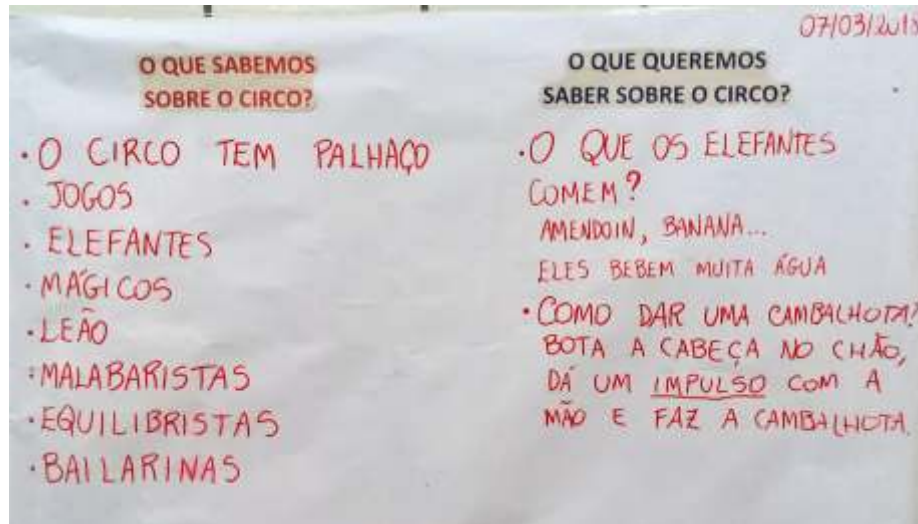 07/03/2018
O QUE SABEMOS
SOBRE O CIRCO?
• O CIRCO TEM PALHAÇO
• JOGOS
• ELEFANTES
• MÁGICOS
• LEÃO
• MALABARISTAS
• EQUILIBRISTAS
• BAILARINAS
O QUE QUEREMOS
SABER SOBRE O CIRCO?
• O QUE OS ELEFANTES
COMEM?
AMENDOIN, BANANA...
ELES BEBEM MUITA ÁGUA
• COMO DAR UMA CAMBALHOTA?
BOTA A CABEÇA NO CHÃO,
DÁ UM IMPULSO COM A
MÃO E FAZ A CAMBALHOTA.